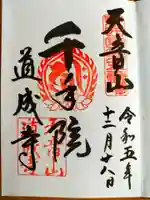 天音山
千手院
道成寺
令和五年
十二月十八日